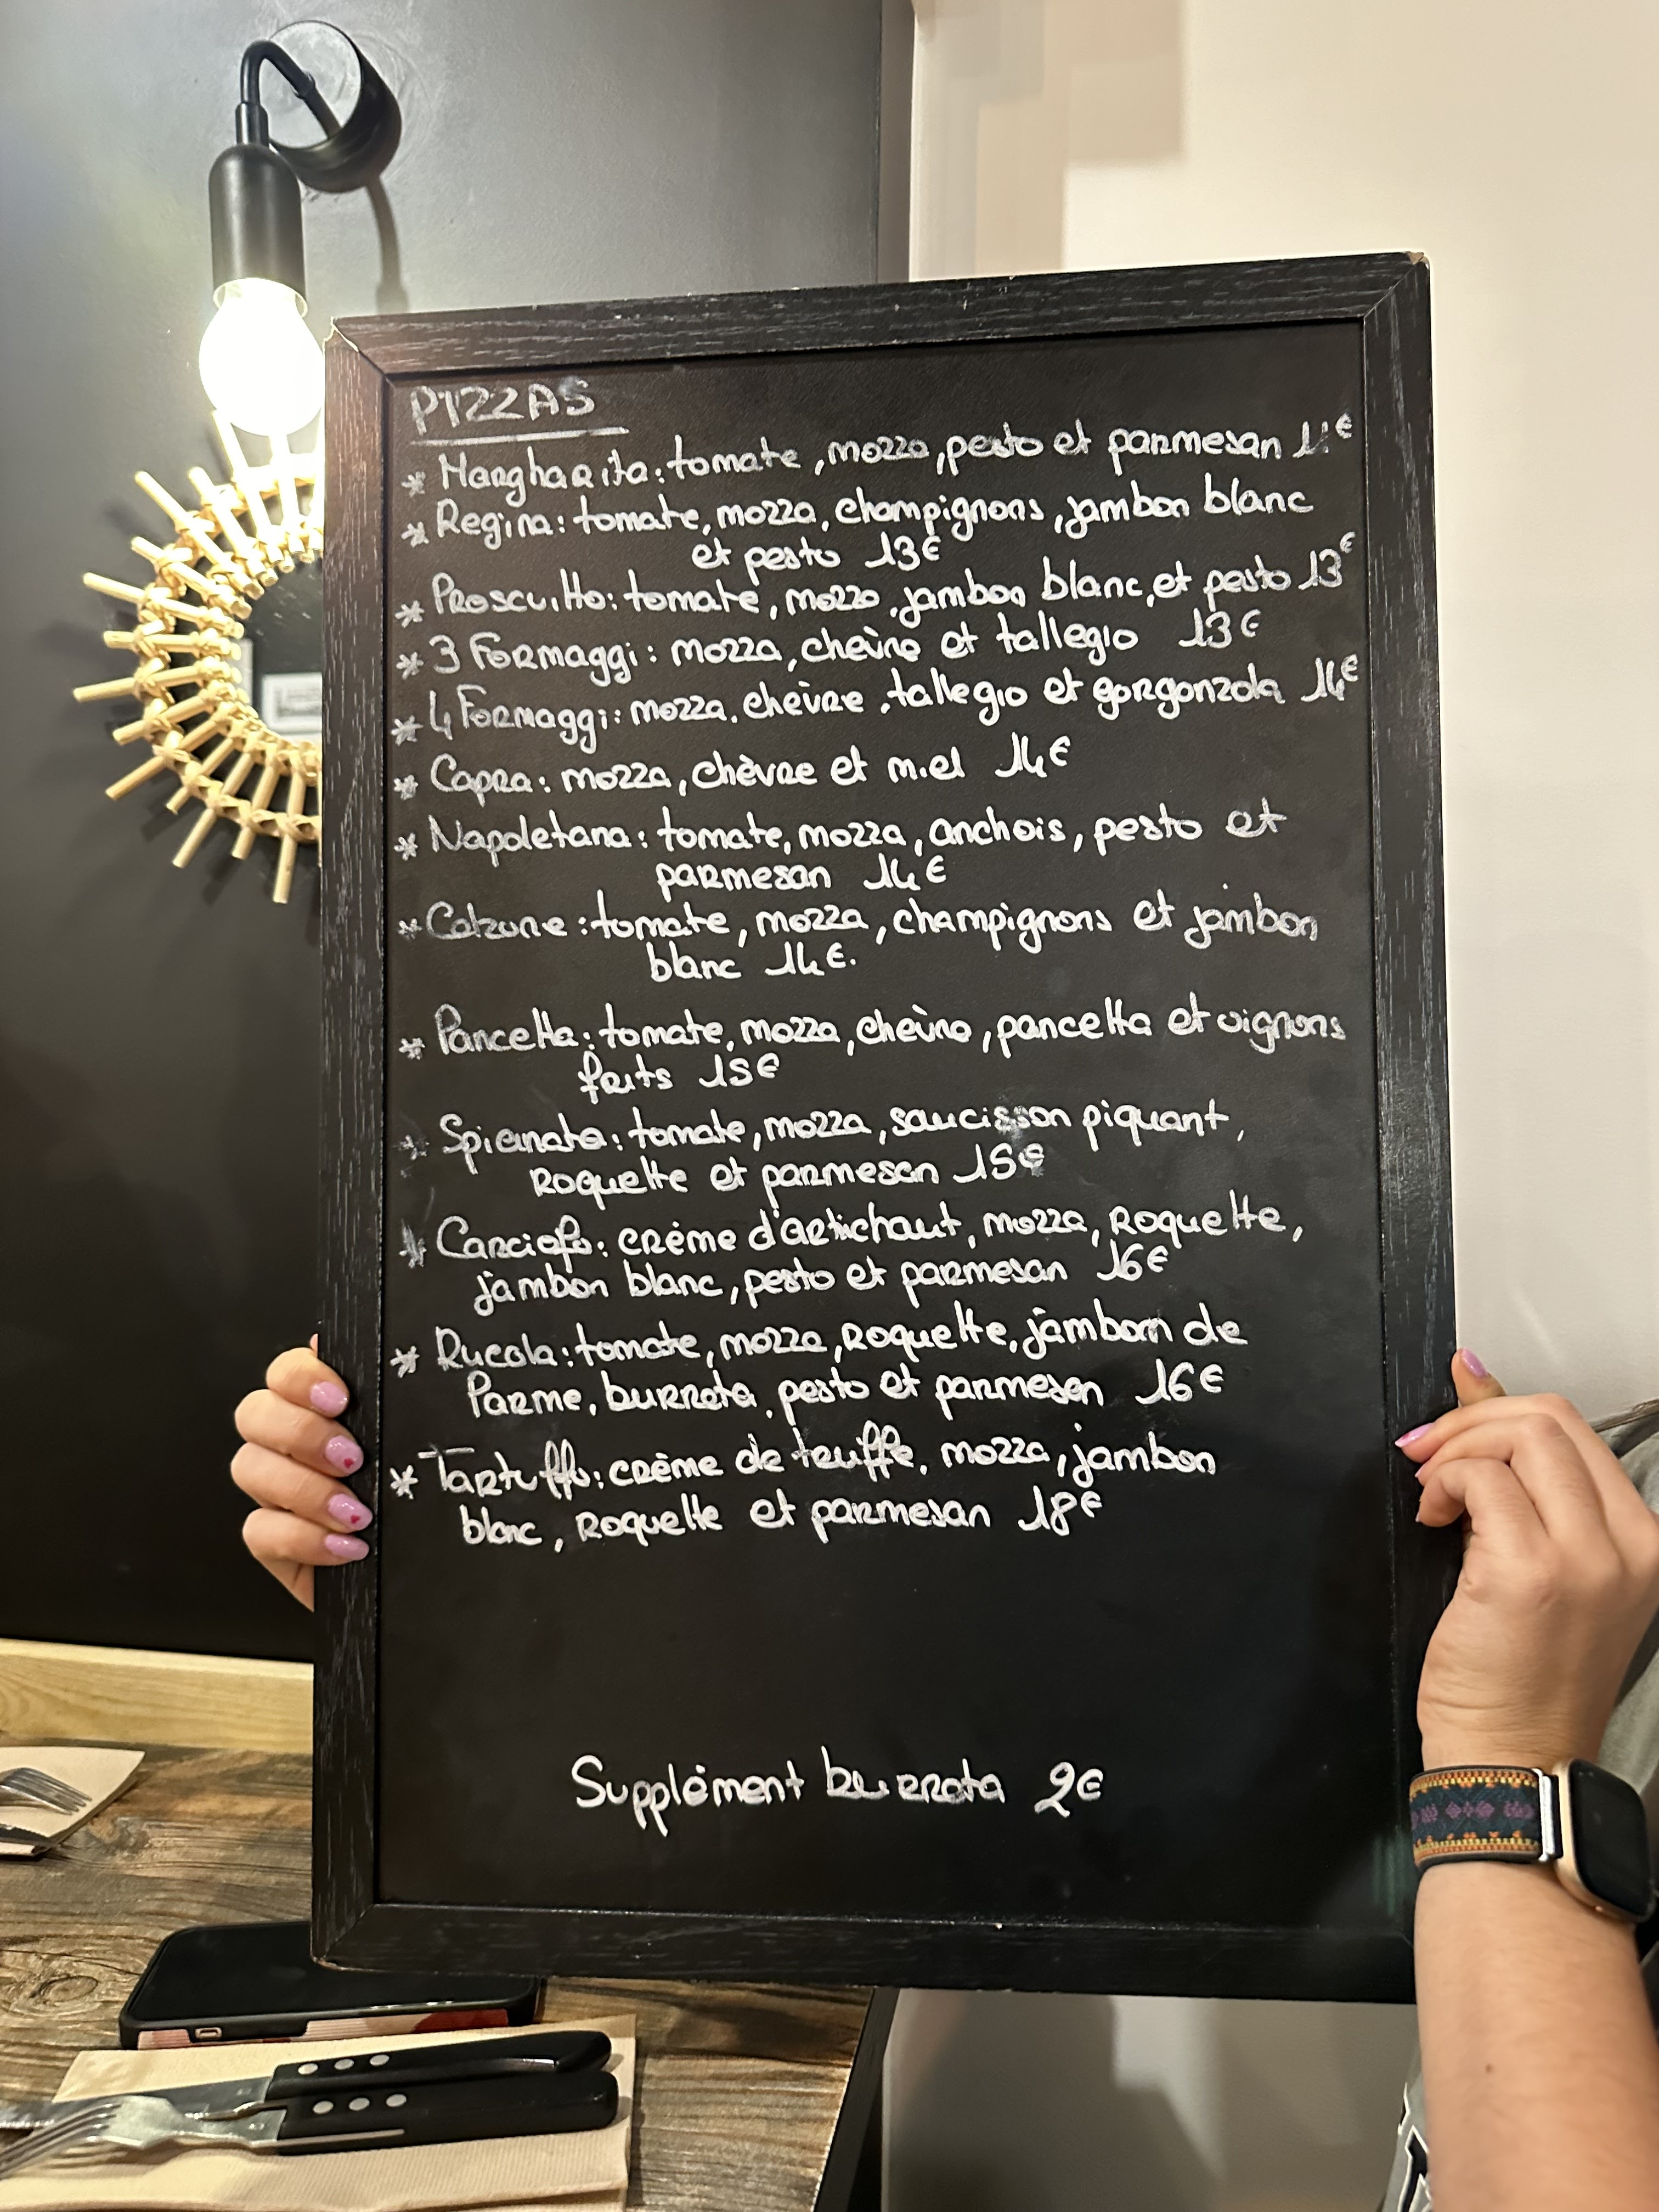 PIZZAS
* Margharita: tomate, mozza, pesto et parmesan 11€
* Regina: tomate, mozza, champignons, jambon blanc
et pesto 13€
* Proscuitto: tomate, mozza, jambon blanc, et pesto 13€
* 3 Formaggi: mozza, chèvre et tallegio 13€
* 4 Formaggi: mozza, chèvre, tallegio et gorgonzola 14€
* Capra: mozza, chèvre et miel 14€
* Napoletana: tomate, mozza, anchois, pesto et
parmesan 14€
* Calzone: tomate, mozza, champignons et jambon
blanc 14€.
* Pancetta: tomate, mozza, chèvre, pancetta et oignons
frits 15€
* Spianata: tomate, mozza, saucisson piquant,
roquette et parmesan 15€
* Carciofo: crème d'artichaut, mozza, roquette,
jambon blanc, pesto et parmesan 16€
* Rucola: tomate, mozza, roquette, jambon de
Parme, burrata, pesto et parmesan 16€
* Tartuffo: crème de truffe, mozza, jambon
blanc, roquette et parmesan 18€
Supplément burrata 2€